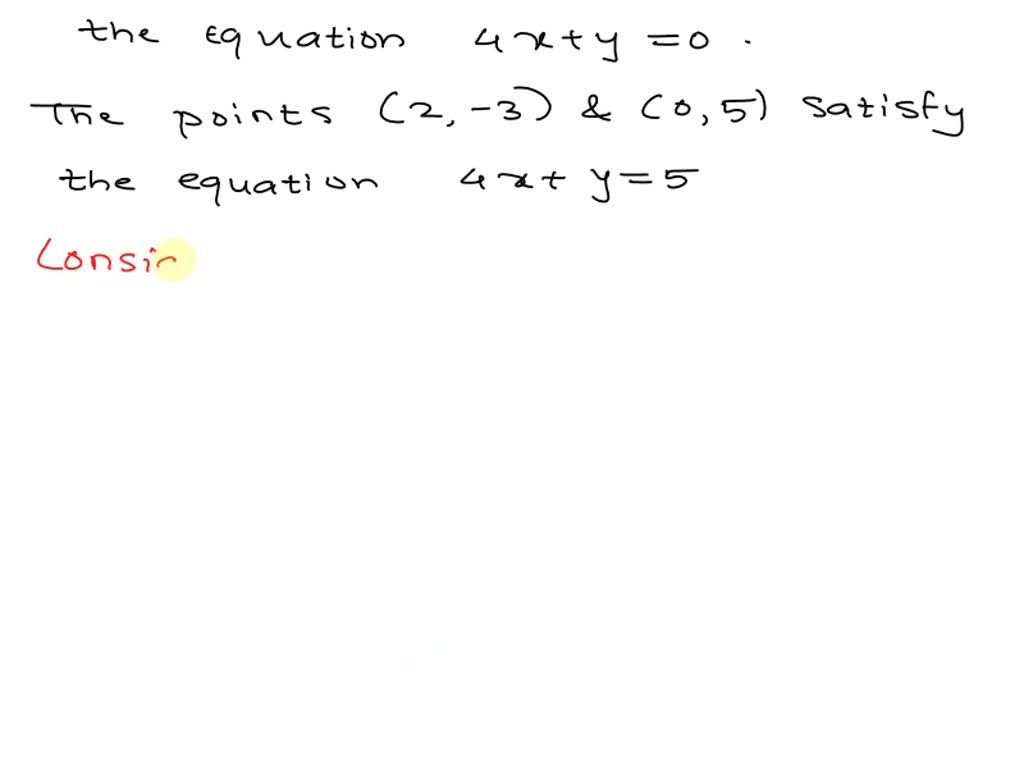 the Equation 4x+y=0.
The points (2,-3) & (0,5) satisfy
the equation 4x+y=5
Consi